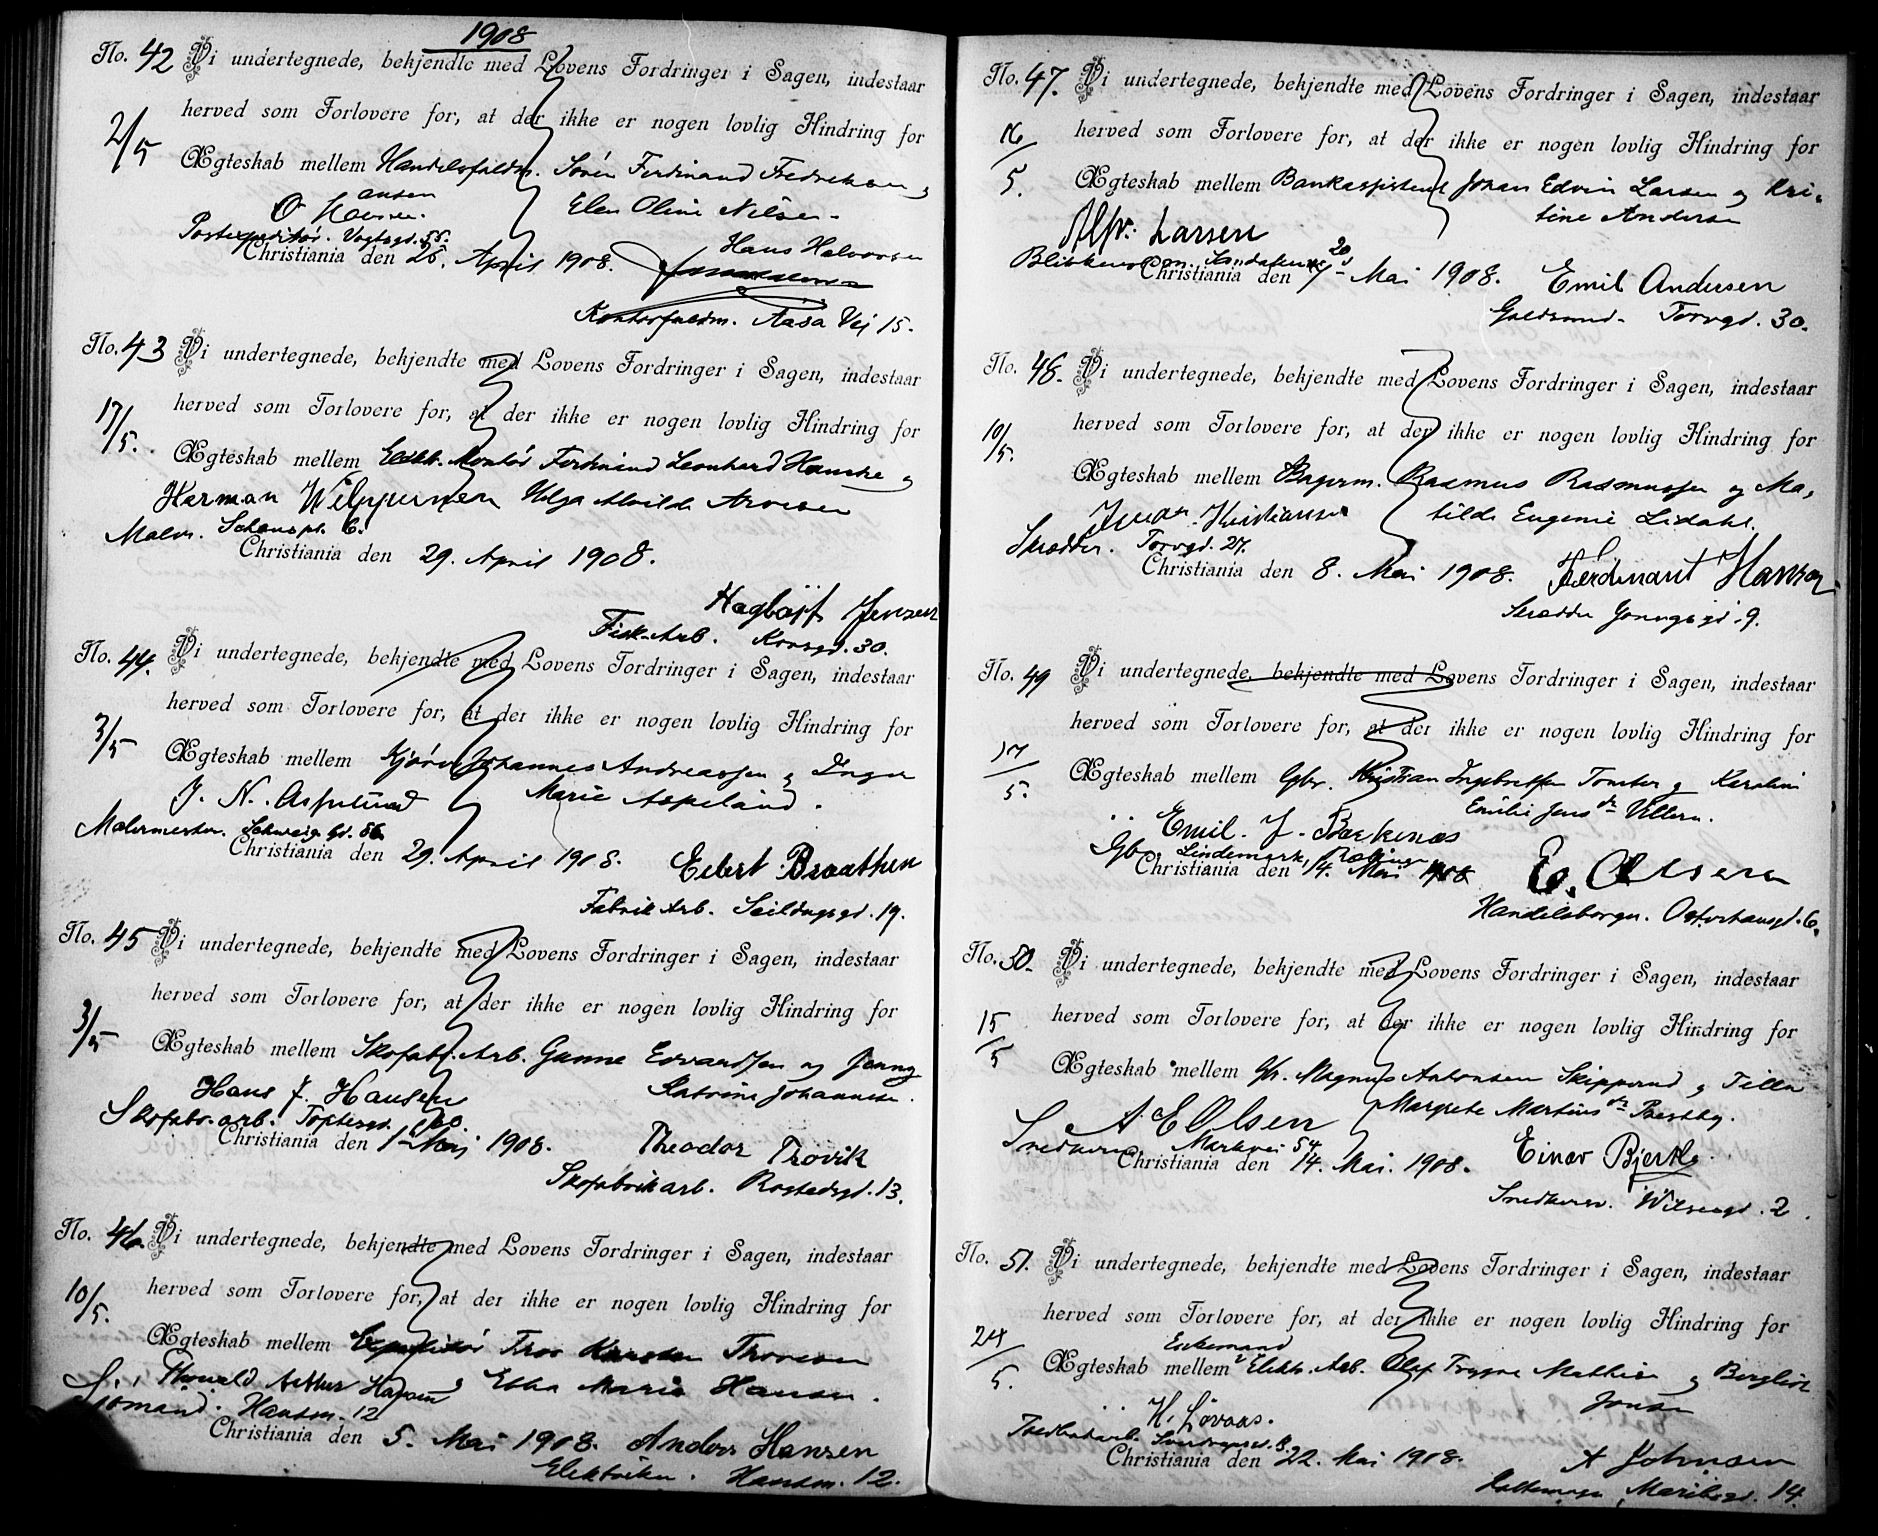 1908
No. 42 Vi undertegnede, bekjendte med Lovens Fordringer i Sagen, indestaar
herved som Forlovere for, at der ikke er nogen lovlig Hindring for
2/5
Ægteskab mellem Handelsfuldm. Sørin Ferdinand Fredriksen og
Elen Oline Nilsen
O Hansen
Postexpeditør. Vogtsgd. 55.
Hans Halvorsen
Christiania den 25. April 1908.
Kontorfuldm. Aasa Vej 15.
No. 43 Vi undertegnede, bekjendte med Lovens Fordringer i Sagen, indestaar
herved som Forlovere for, at der ikke er nogen lovlig Hindring for
17/5.
Ægteskab mellem Elekt. Montør Ferdinand Leonhard Hanche og
Helga Alvilde Arvesen
Herman
Maler. Schouspl. 6.
Christiania den 29. April 1908.
Hagbart Jensen
Fisk. Arb. Korsgd. 30.
No. 44. Vi undertegnede, bekjendte med Lovens Fordringer i Sagen, indestaar
herved som Forlovere for, at der ikke er nogen lovlig Hindring for
3/5
Ægteskab mellem Kjører Johannes Andreassen og Inga
Marie Aspeland.
J. N. Aspelund
Malermester. Schweigsgd. 56
Christiania den 29. April 1908.
Eilert Braathen
Fabrik Arb. Seildugsgd. 19.
No. 45 Vi undertegnede, bekjendte med Lovens Fordringer i Sagen, indestaar
herved som Forlovere for, at der ikke er nogen lovlig Hindring for
3/5
Ægteskab mellem Skofabr. Arb. Gunne Edvardsen og Jenny
Katrine Johannesen.
Hans J. Hansen
Skofabr. arb. Toftesgd.
Christiania den 1 Mai 1908.
Theodor Trovik
Skofabrikarb. Rostedsgd. 13.
No. 46. Vi undertegnede, bekjendte med Lovens Fordringer i Sagen, indestaar
herved som Forlovere for, at der ikke er nogen lovlig Hindring for
10/5.
Ægteskab mellem Expeditør Karsten Thoresen
og Ebba Marie Hansen.
Thorvald Arthur Hansen
Sjømand. Hausm. 12
Christiania den 5. Mai 1908.
Anders Hansen
Elektriker. Hausm. 12.
No. 47. Vi undertegnede, bekjendte med Lovens Fordringer i Sagen, indestaar
herved som Forlovere for, at der ikke er nogen lovlig Hindring for
16/5.
Ægteskab mellem Bankassistent Johan Edvin Larsen og Kri-
stine Andersen
Alfr. Larsen
Christiania den 7 Mai 1908.
Emil Andersen
Guldsmed. Torvgd. 30.
No. 48. Vi undertegnede, bekjendte med Lovens Fordringer i Sagen, indestaar
herved som Forlovere for, at der ikke er nogen lovlig Hindring for
10/5.
Ægteskab mellem Bagerm. Rasmus Rasmussen og Ma-
tilde Eugenie Lidahl.
Kristiansen
Skrædder. Torvgd. 27.
Christiania den 8. Mai 1908.
Ferdinant Hansen
Skrædder Youngsgd. 9.
No. 49 Vi undertegnede, bekjendte med Lovens Fordringer i Sagen, indestaar
herved som Forlovere for, at der ikke er nogen lovlig Hindring for
17/5.
Ægteskab mellem Gbr. Kristian Ingebretsen Tomter og Karoline
Emilie Jens dr Villern.
Emil. J. Barkenæs
Gbr. Lindemark, Rællingen
Christiania den 14. Mai 1908
E. Olsen
Handelsborger. Osterhausgd. 6.
No. 50. Vi undertegnede, bekjendte med Lovens Fordringer i Sagen, indestaar
herved som Forlovere for, at der ikke er nogen lovlig Hindring for
15/5
Ægteskab mellem Gbr. Magnus Antonsen Skipperud og Tilla
Margrete Martius dr Præstby.
A E Olsen
Snedkersv. Markvei 54
Christiania den 14. Mai. 1908.
Einar Bjerke
Snedkersv. Wilsesgd. 2.
No. 51. Vi undertegnede, bekjendte med Lovens Fordringer i Sagen, indestaar
herved som Forlovere for, at der ikke er nogen lovlig Hindring for
24/5.
Enkemand
Ægteskab mellem Elektr. Arb. Olaf Trygve Mathisen og Bergliot
Jonsen
H. Løvaas.
Christiania den 22. Mai 1908.
A Johnsen
Maribogd. 14.